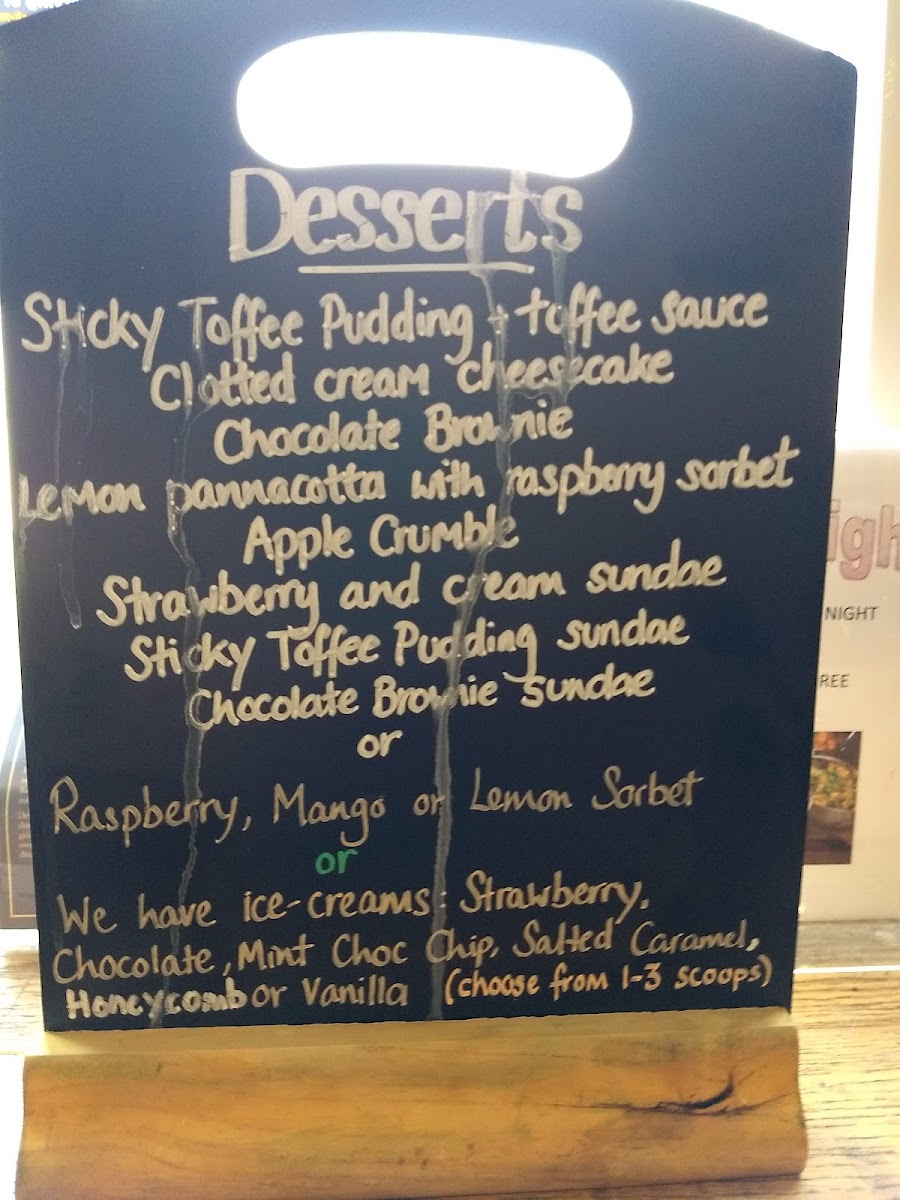 Desserts
Sticky Toffee Pudding + toffee sauce
Clotted cream cheesecake
Chocolate Brownie
Lemon pannacotta with raspberry sorbet
Apple Crumble
Strawberry and cream sundae
Sticky Toffee Pudding sundae
Chocolate Brownie sundae
or
Raspberry, Mango or Lemon Sorbet
or
We have ice-creams: Strawberry,
Chocolate, Mint Choc Chip, Salted Caramel,
Honeycomb or Vanilla (choose from 1-3 scoops)
NIGHT
REE